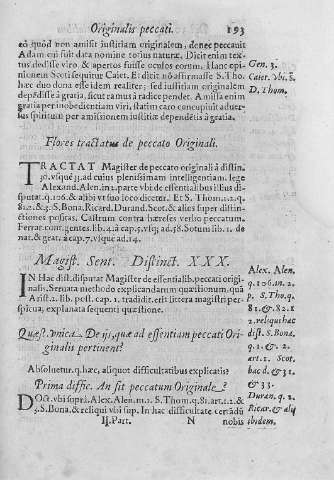 Originalis peccati. 193
eò quòd non amisit iustitiam originalem, donec peccauit
Adam cui fuit data nomine totius naturæ. Dicit enim tex-
tus dedisse viro. & apertos fuisse oculos eorum. Hanc opi-
nionem Scoti sequitur Caiet. Et dicit nō affirmasse S. Tho.
hæc duo dona esse idem realiter; sed iustitiam originalem
depēdisse à gratia, sicut ramus à radice pendet. Amissa enim
gratia per inobedientiam viri, statim caro concupiuit aduer-
sus spiritum per amissionem iustitiæ dependētis à gratia.
Gen. 3.
Caiet. vbi. s.
D. Thom.
Flores tractatus de peccato Originali.
TRACTAT Magister de peccato originali à distin.
30. vsque 33. ad cuius plenissimam intelligentiam, lege
Alexand. Alen. in 2. parte vbi de essentialibus illius dis-
putat. q. 106. & alibi vt suo loco dicetur. Et S. Thom. 1. 2. q.
81. 2. & 3. S. Bona. Ricard. Durand. Scot. & alios super distin-
ctiones positas. Castrum contra hæreses verbo peccatum.
Ferrar. cont. gentes. lib. 4. à cap. 5. vsq; ad 58. Sotum lib. 1. de
nat. & grat. à cap. 7. vsque ad. 14.
Magist. Sent. Distinct. XXX.
IN Hac dist. disputat Magister de essentialib. peccati origi-
nalis. Seruata methodo explicandarum quæstionum, quā
Arist. 2. lib. post. cap. 1. tradidit. erit littera magistri per-
spicua, explanata sequenti quæstione.
Quæst. vnica. De ijs, quæ ad essentiam peccati Ori-
ginalis pertinent?
Absoluetur. q. hæc, aliquot difficultatibus explicatis?
Prima diffic. An sit peccatum Originale?
DOct. vbi suprà. Alex. Alen. m. 1. S. Thom. q. 81. art. 1. 2. &
3. S. Bona. & reliqui vbi sup. In hac difficultate certādū
Alex. Alen.
q. 106. in. 2.
p. S. Tho. q.
81. & 82. 1
2. reliqui hac
dist. S. Bona.
q. 1. & 2.
art. 1. Scot.
hac d. & 31.
& 33.
Duran. q. 2.
Ricar. & alij
ibidem.
II. Part. N nobis